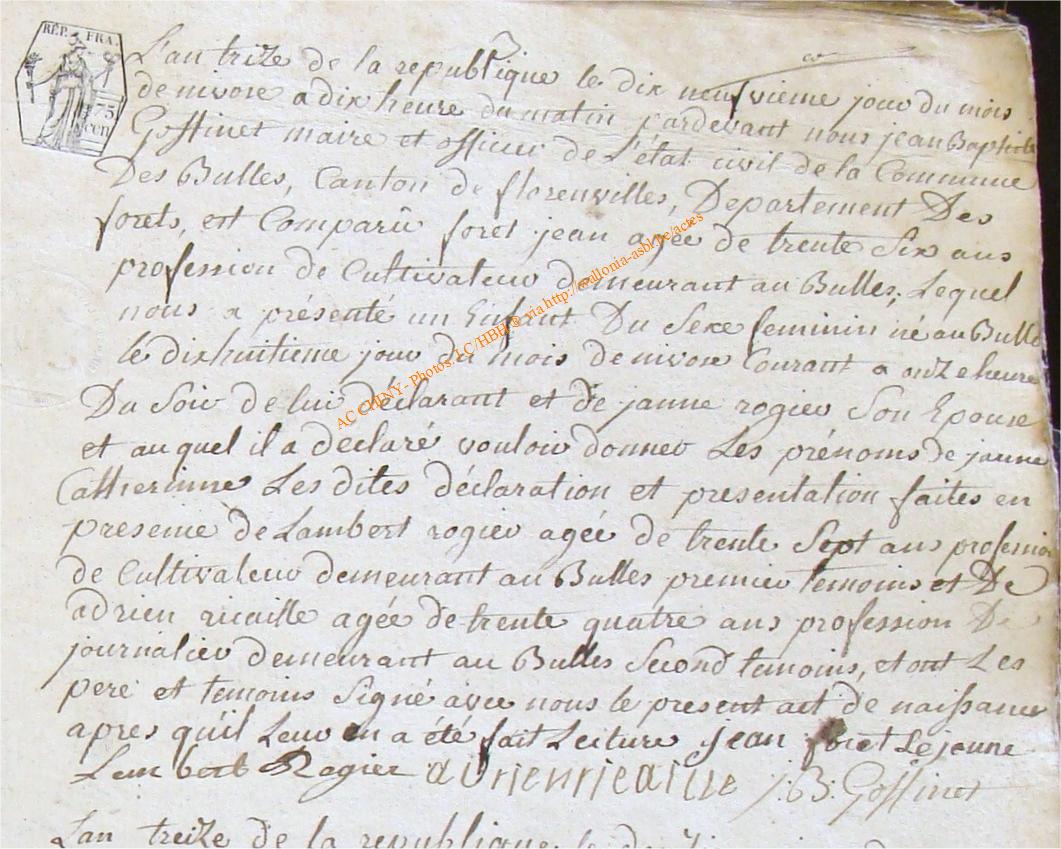 RÉP. FRA.
75
cen
L'an trize de la republique le dix neufvieme jour du mois
de nivose a dix heure du matin pardevant nous jean Baptiste
Goffinet maire et officier de L'état civil de la Commune
Des Bulles, Canton de florenvilles, Departement Des
forets, est Comparû foret jean agée de trente Six ans
profession de Cultivateur demeurant au Bulles, Lequel
nous a présenté un Enfant Du Sexe feminin né au Bulle
le dixhuitieme jour du mois de nivose Courant a onze heure
Du Soir de lui déclarant et de janne rogier Son Epouse
et auquel il a declaré vouloir donner Les prénoms de janne
Catherinne Les dites déclaration et presentation faites en
presence de Lambert rogier agée de trente Sept ans profession
de Cultivateur demeurant au Bulles premier temoins et De
adrien ricaille agée de trente quatre ans profession De
journalier demeurant au Bulles Second temoins, et ont Les
pere et temoins Signé avec nous le present act de naissance
apres qu'il Leur en a été fait Leiture jean foret Le jeune
Lambert Rogier adrienrieaille J:B: Goffinet
Lan treize de la republique le
AC CHINY- Photos J.C/HBH ® via http://wallonia-asbl.be/actes